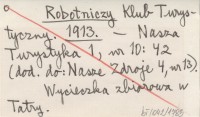 Robotniczy Klub Turys-
tyczny. 1913. - Nasza
Turystyka 1, nr 10: 42
(dod. do: Nasze Zdroje 4, nr 13).
Wycieczka zbiorowa w
Tatry.